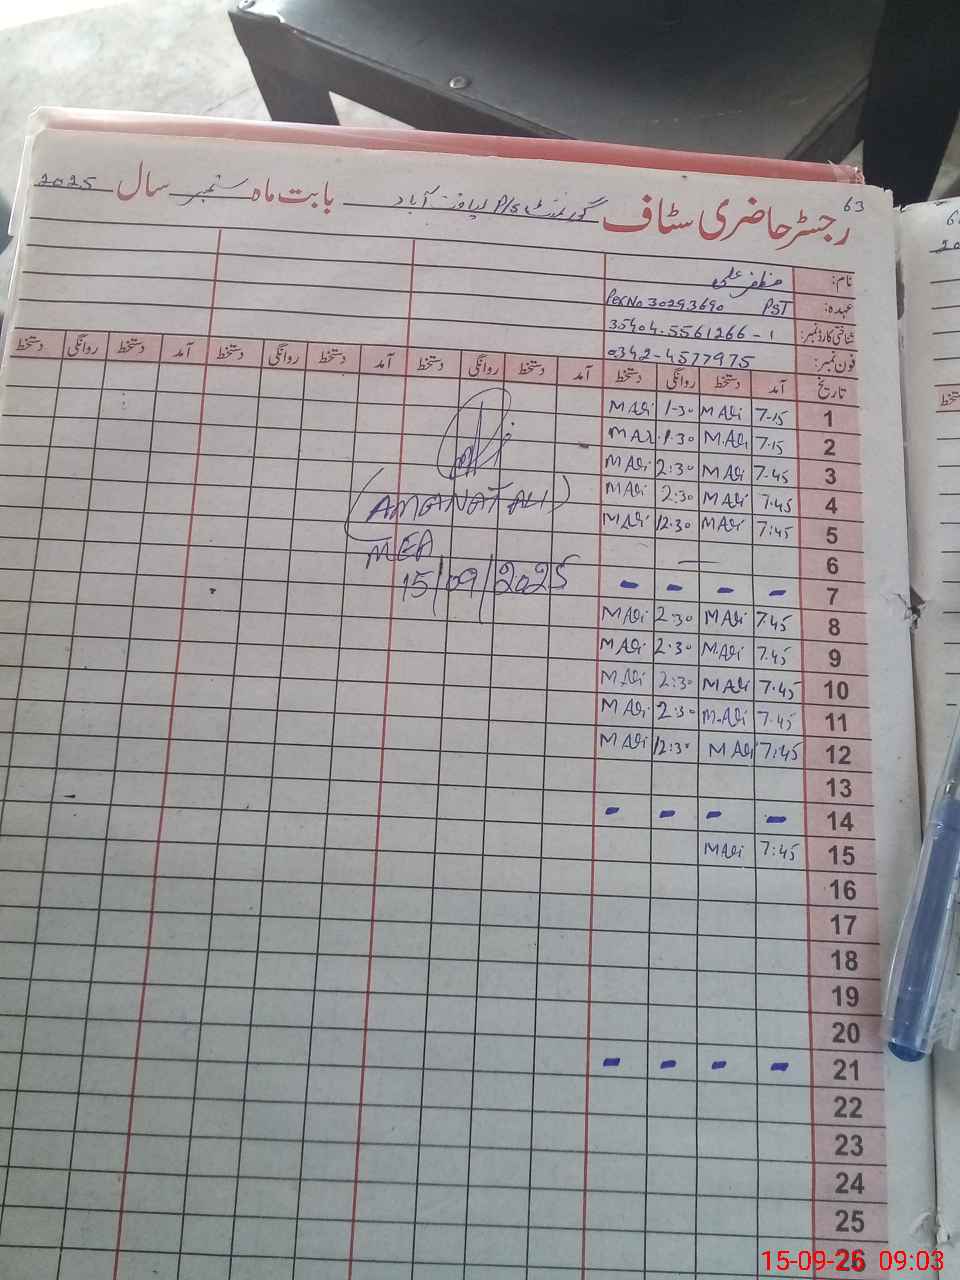 63
رجسٹر حاضری سٹاف گورنمنٹ P/S آباد بابت ماہ ستمبر سال 2025
نام: مظفر علی
عہدہ: Per No 30293690 PST
شناختی کارڈ نمبر: 35404-5561266-1
فون نمبر: 0342-4577975
تاریخ آمد دستخط روانگی دستخط آمد دستخط روانگی دستخط آمد دستخط روانگی دستخط
1 7-15 M Ali 1-30 M Ali
2 7-15 M.Ali 1.30 M Ali
3 7-45 M Ali 2:30 M Ali
4 7.45 M Ali 2:30 M Ali
5 7:45 M Ali 12.30 M Ali
6 —
7 - - - -
8 7.45 M Ali 2:30 M Ali
9 7.45 M.Ali 2.30 M Ali
10 7.45 M Ali 2:30 M Ali
11 7.45 M.Ali 2:30 M Ali
12 7:45 M Ali 12:30 M Ali
13
14 - - - -
15 7:45 M Ali
16
17
18
19
20
21 - - - -
22
23
24
25
26
(AMANAT ALI)
MEA
15/09/2025
15-09-25 09:03